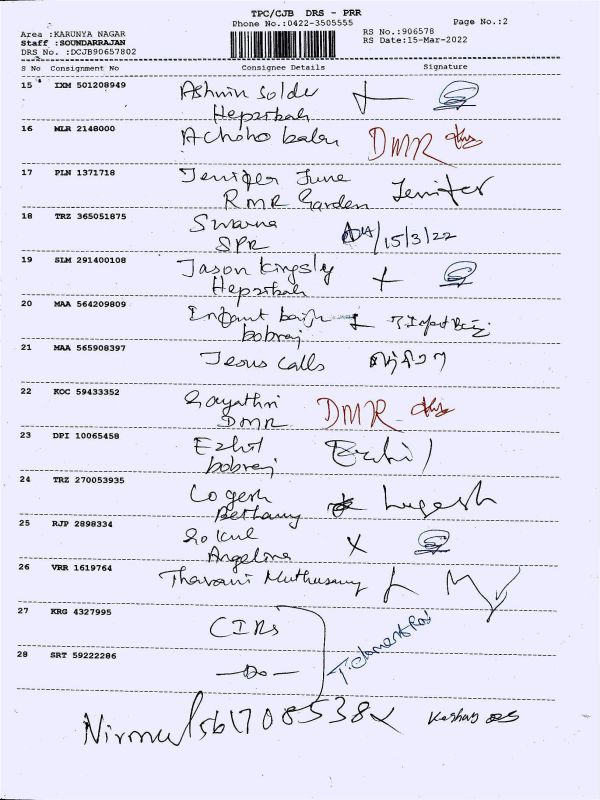 TPC/CJB DRS - PRR
Phone No.:0422-3505555
Page No.:2
Area :KARUNYA NAGAR
Staff :SOUNDARRAJAN
DRS No. :DCJB90657802
RS No.:906578
RS Date:15-Mar-2022
S No Consignment No Consignee Details Signature
15 IXM 501208949 Ashwin
Hepzibah
16 MLR 2148000 DMR
17 PLN 1371718 Jenifer June Jenifer
RMR Garden
18 TRZ 365051875 Swarna 15/3/22
SPR
19 SLM 291400108 Jason Kingsly
Hepzibah
20 MAA 564209809 Infant
bobraj
21 MAA 565908397 Jesus calls
22 KOC 59433352 Gayathri DMR
DMR
23 DPI 10065458 Ezhil Ezhil
bobraj
24 TRZ 270053935 Logesh Logesh
Bethany
25 RJP 2898334 Gokul X
Angeline
26 VRR 1619764 Muthusamy
27 KRG 4327995 CIRs
28 SRT 59222286 -Do-